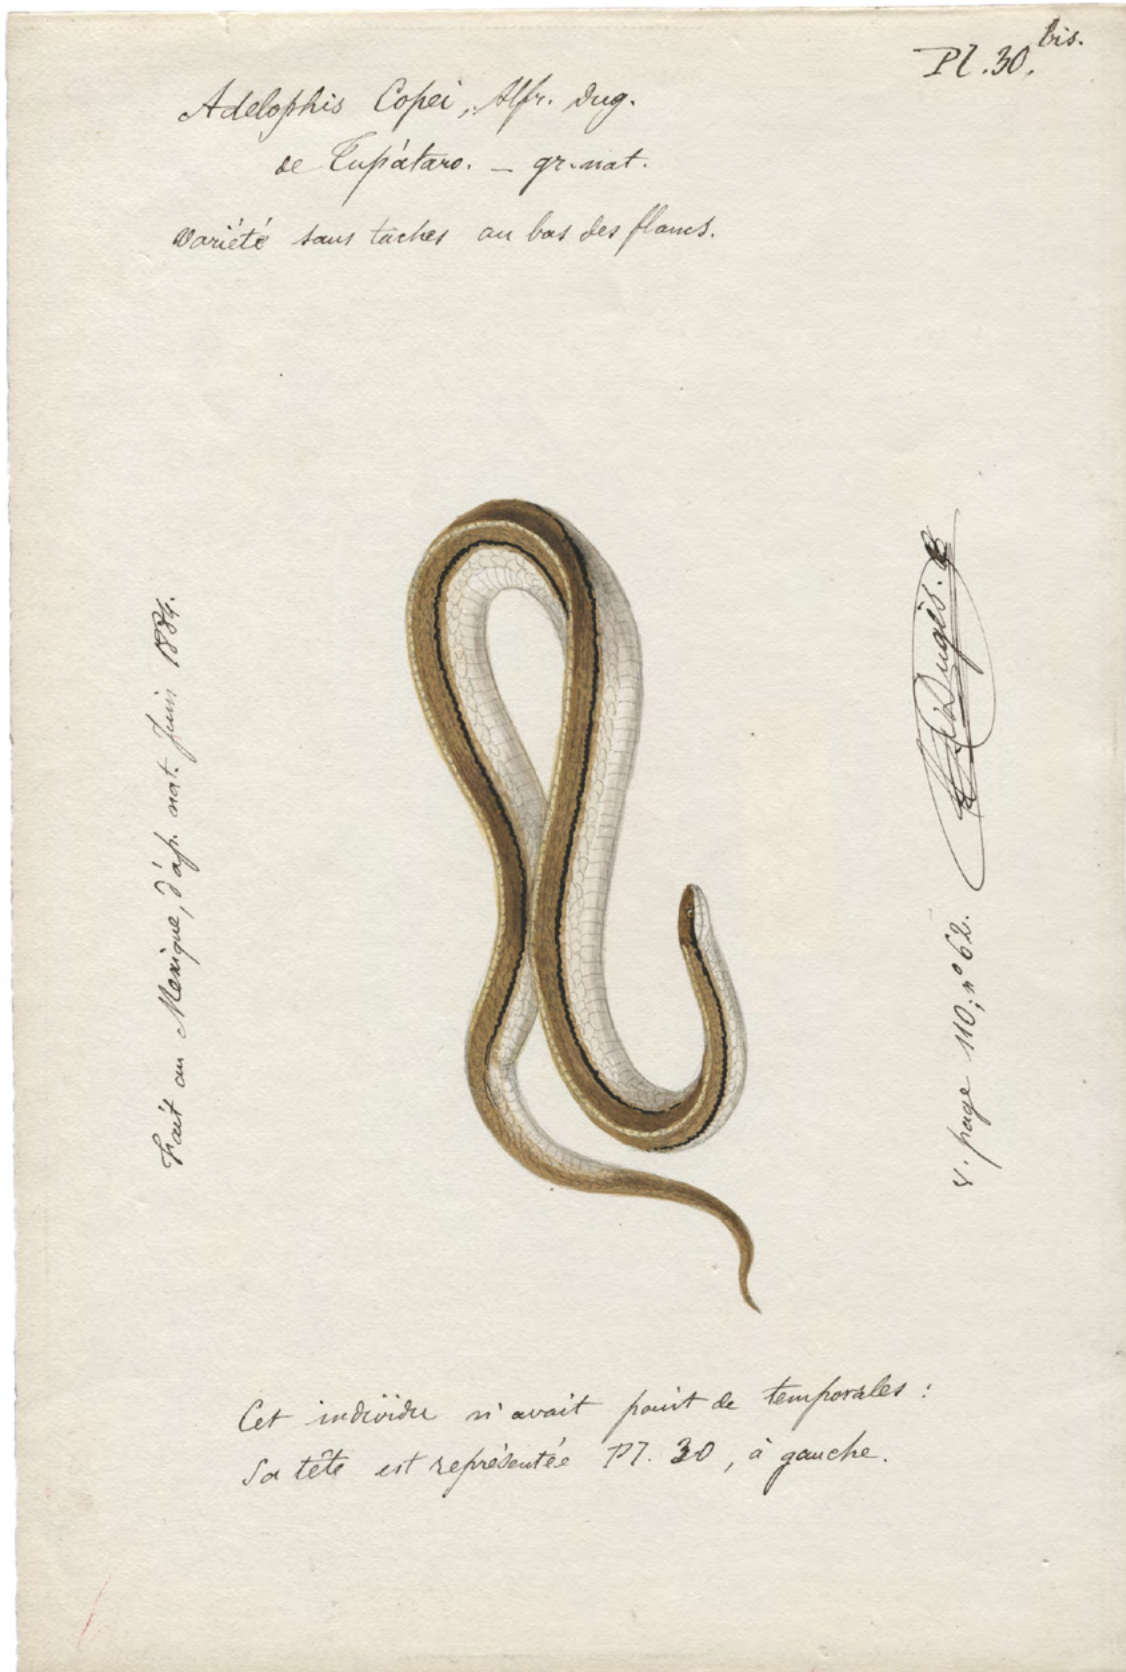 Pl. 30. bis.
Adelophis Copei, Alfr. Dug.
de Tupátaro. _ gr. nat.
variété sans taches au bas des flancs.
Fait au Mexique, d'ap. nat. Juin 1884.
A. Dugès.
v. page 110; nº 62.
Cet individu n'avait point de temporales :
Sa tête est représentée Pl. 30, à gauche.